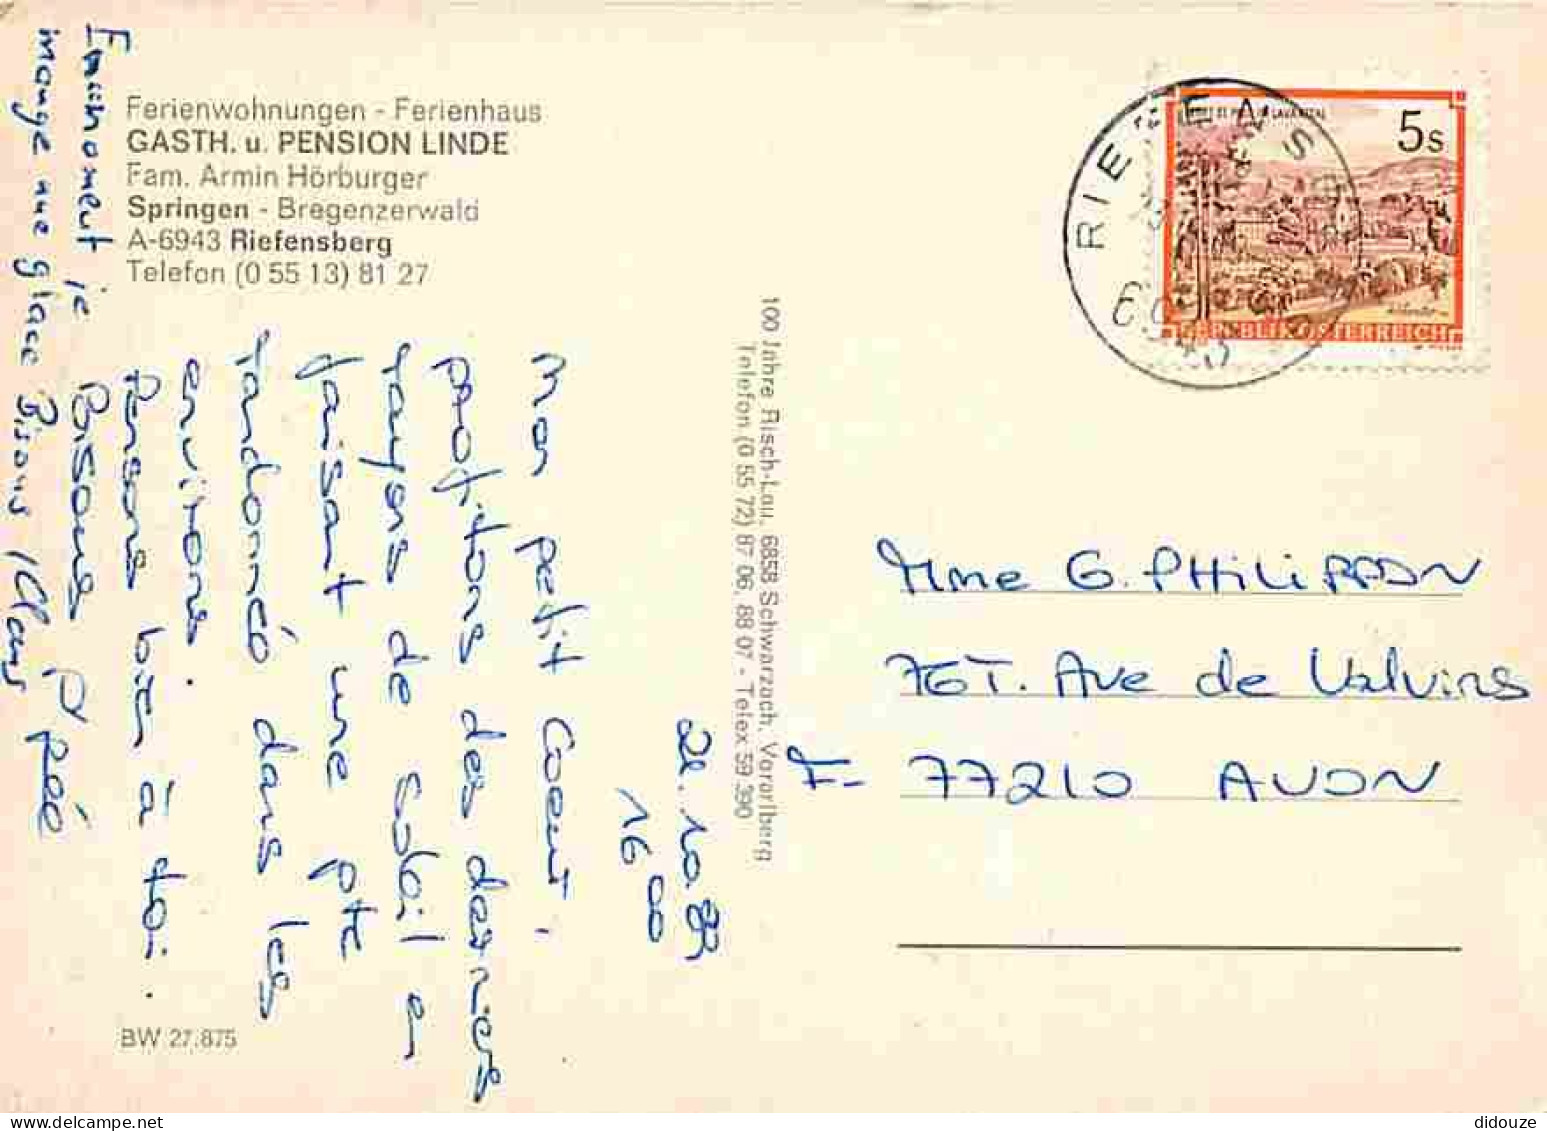 Ferienwohnungen - Ferienhaus
GASTH. u. PENSION LINDE
Fam. Armin Hörburger
Springen - Bregenzerwald
A-6943 Riefensberg
Telefon (0 55 13) 81 27
BW 27.875
100 Jahre Risch-Lau, 6858 Schwarzach, Vorarlberg
Telefon (0 55 72) 87 06, 88 07 - Telex 59 390
RIEFENSBERG
6943
5 S
REPUBLIK ÖSTERREICH
16 00
Mon petit Coeur,
profitons des derniers
rayons de soleil en
faisant une pte
randonnée dans les
environs.
Pensons bien à toi.
Bisous
je
mange une glace Bisous
Mme G. PHILIPPON
76T. Ave de Valvins
F- 77210 AVON
didouze